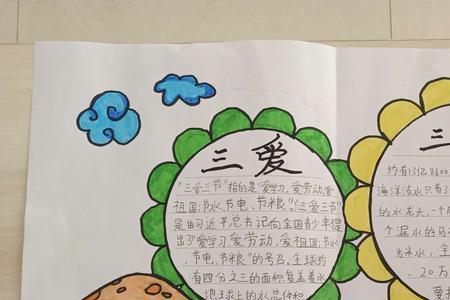 三爱
"三爱三节"指的是"爱学习,爱劳动,爱
祖国;节水节电、节粮","三爱三节"
是由习近平总书记向全国青少年提
出了"爱学习,爱劳动,爱祖国;节水
,节电、节粮"的号召。全球约
有四分之三的面积覆盖着水,
地球上的水总体积
三
约有13亿8600
海洋淡水只有3
的水龙头,一个
个漏水的马
方米水,全
20万